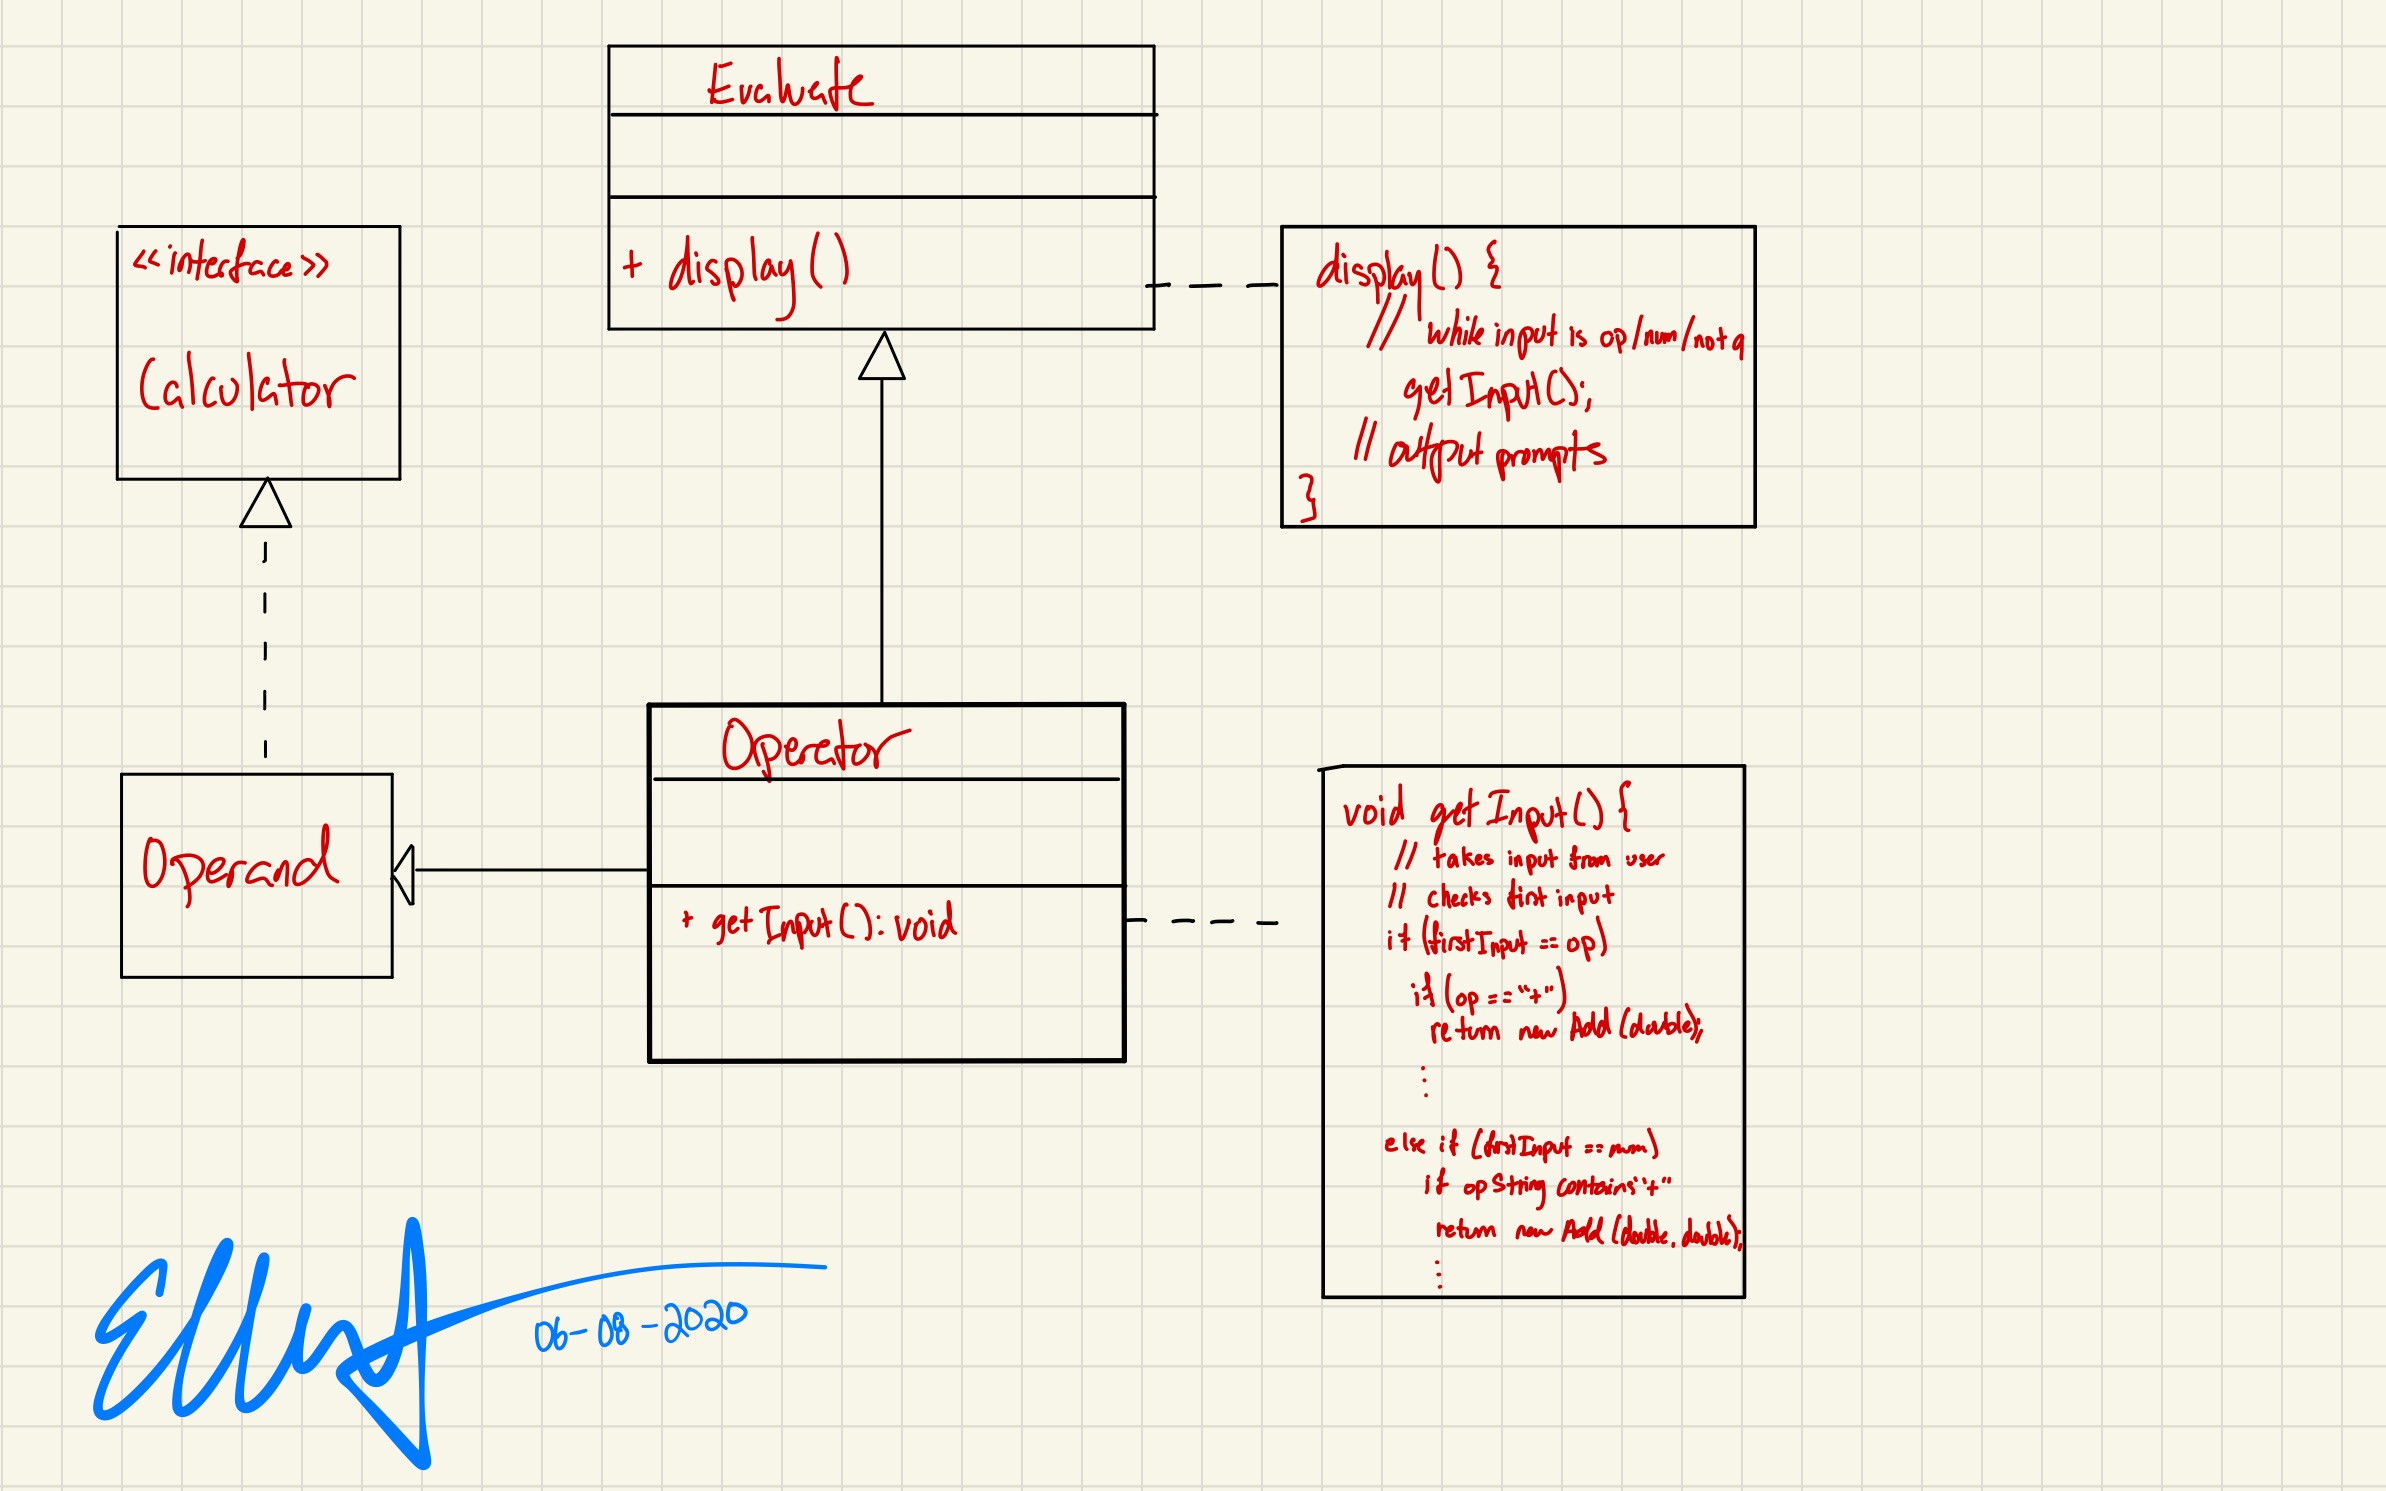 Evaluate
+ display()
<<interface>>
Calculator
display() {
// while input is op/num/not q
getInput();
// output prompts
}
Operand
Operator
+ getInput(): void
void getInput() {
// takes input from user
// checks first input
if (firstInput == op)
if (op == "+")
return new Add (double);
⋮
else if (firstInput == num)
if opString contains "+"
return new Add (double, double);
⋮
06-08-2020